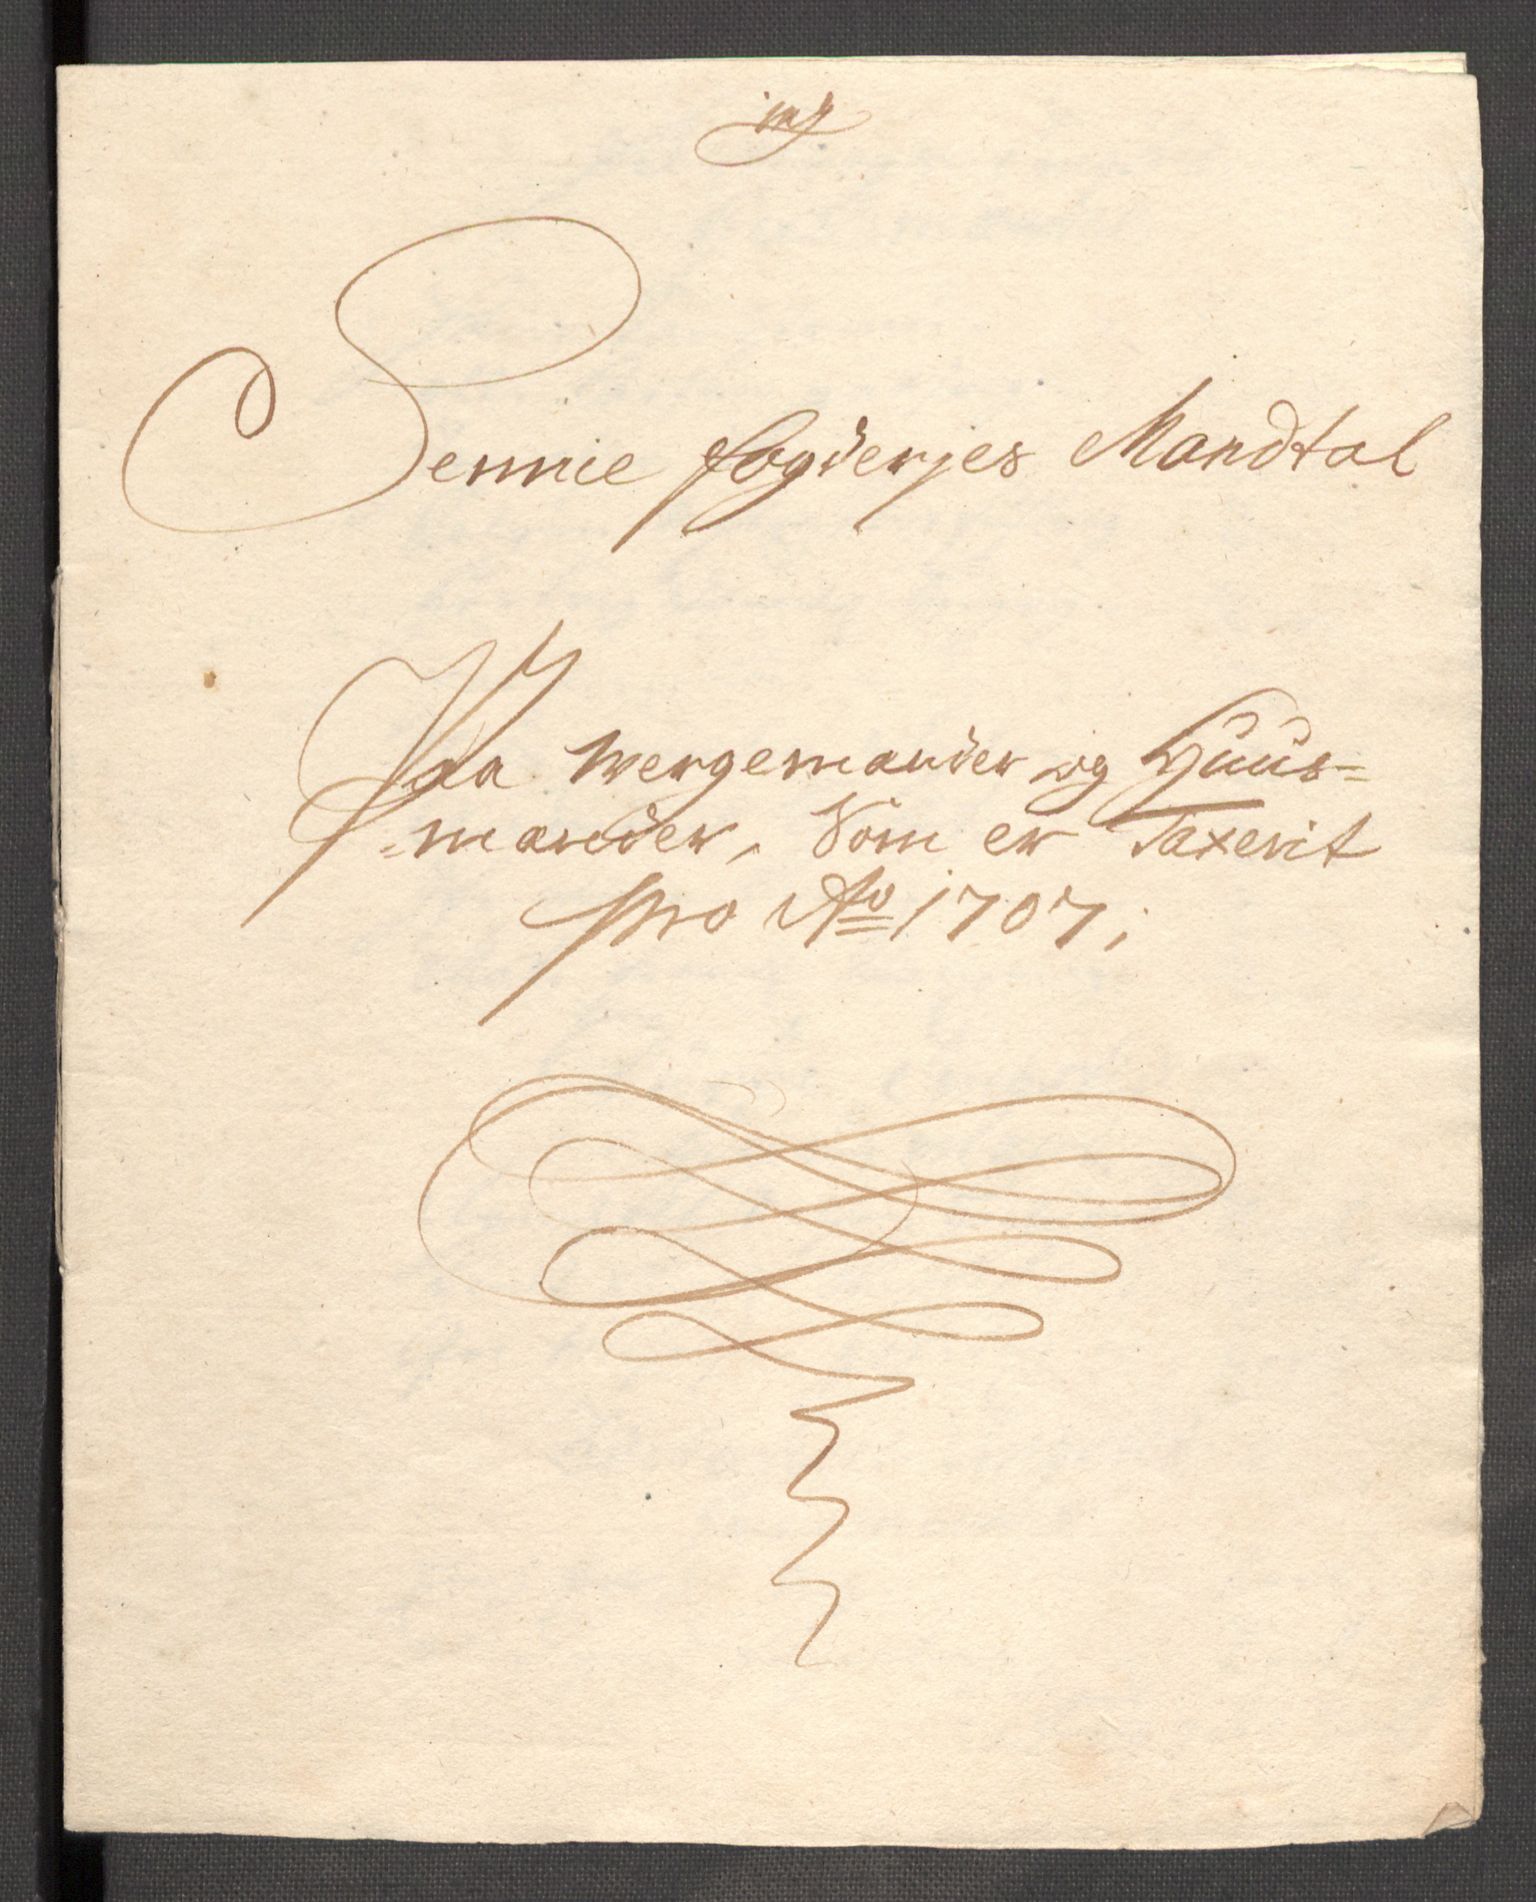 Sennie fogderjes Mandtal
Paa wergemander og Huus=
=mander, Som er Taxerit
pro Ao 1707;